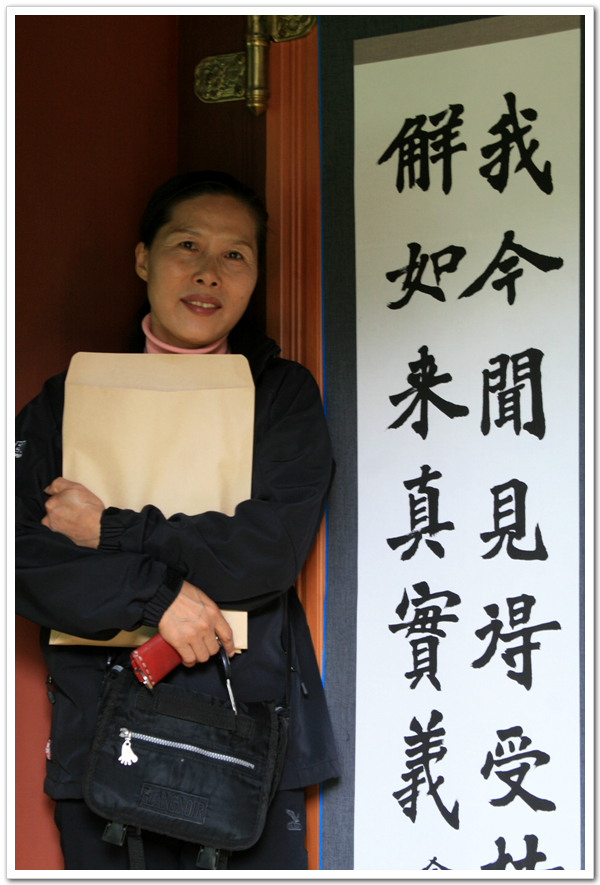 我今聞見得受持
解如来真實義